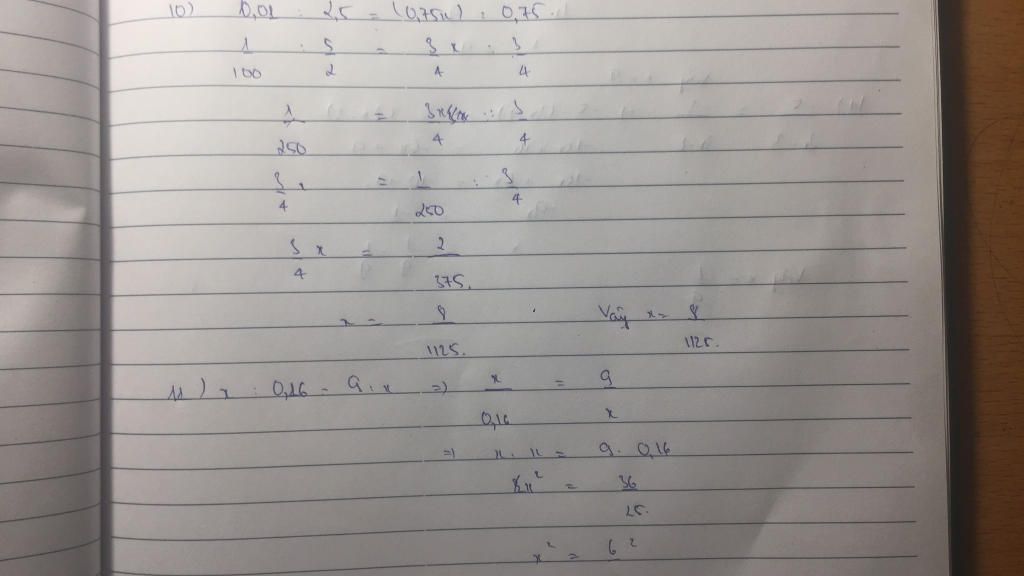 10) 0,01 : 2,5 = (0,75x) : 0,75.
1/100 : 5/2 = 3/4 x : 3/4
1/250 = 3x/4 : 3/4
3/4 x = 1/250 : 3/4
3/4 x = 2/375.
x = 8/1125. Vậy x = 8/1125.
11) x : 0,16 = 9 : x => x/0,16 = 9/x
=> x . x = 9 . 0,16
x² = 36/25.
x² = 6²